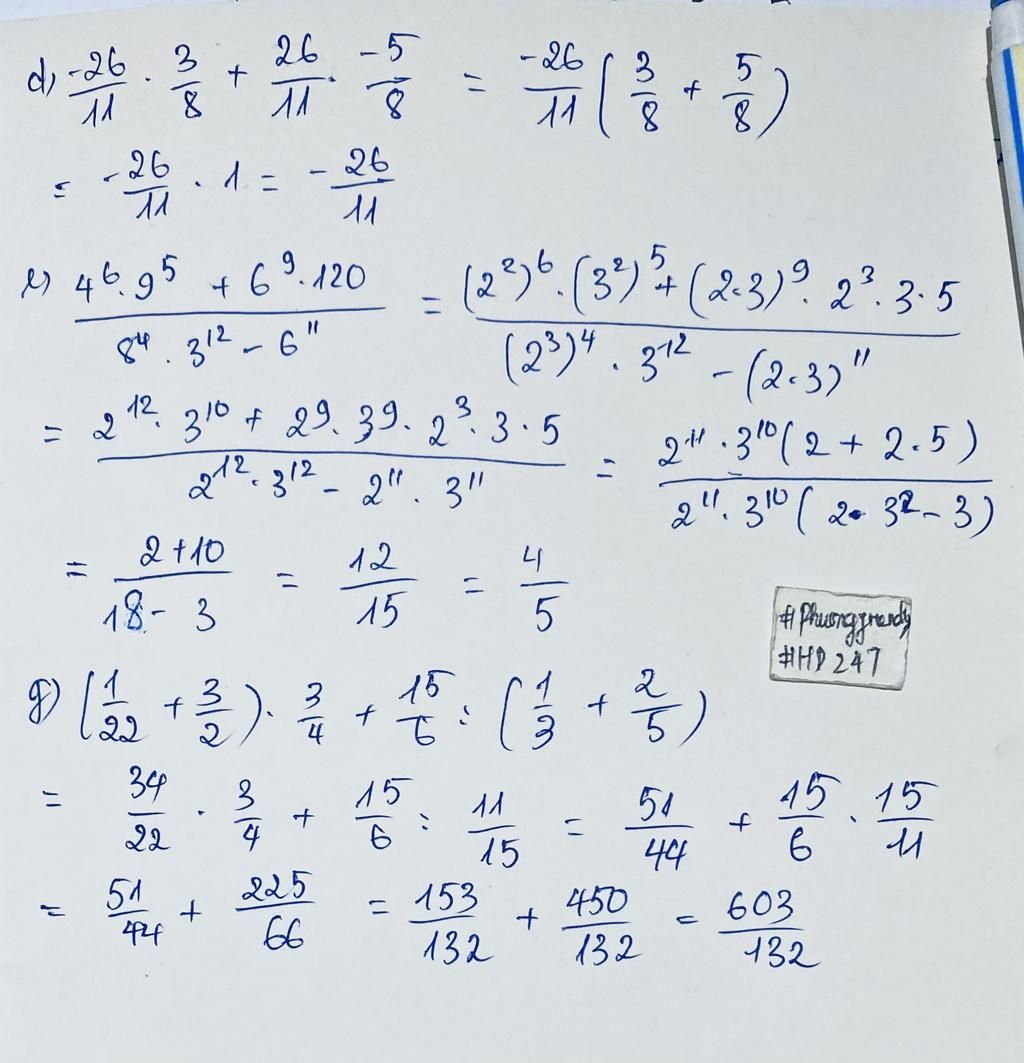 d) -26/11 . 3/8 + 26/11 . -5/8 = -26/11 (3/8 + 5/8)
= -26/11 . 1 = -26/11
e) (4^6 . 9^5 + 6^9 . 120)/(8^4 . 3^12 - 6^11) = ((2^2)^6 . (3^2)^5 + (2.3)^9 . 2^3 . 3 . 5)/((2^3)^4 . 3^12 - (2.3)^11)
= (2^12 . 3^10 + 2^9 . 3^9 . 2^3 . 3 . 5)/(2^12 . 3^12 - 2^11 . 3^11) = (2^11 . 3^10 (2 + 2.5))/(2^11 . 3^10 (2 . 3^2 - 3))
= (2+10)/(18 - 3) = 12/15 = 4/5
#HD247
g) (1/22 + 3/2) . 3/4 + 15/6 : (1/3 + 2/5)
= 34/22 . 3/4 + 15/6 : 11/15 = 51/44 + 15/6 . 15/11
= 51/44 + 225/66 = 153/132 + 450/132 = 603/132